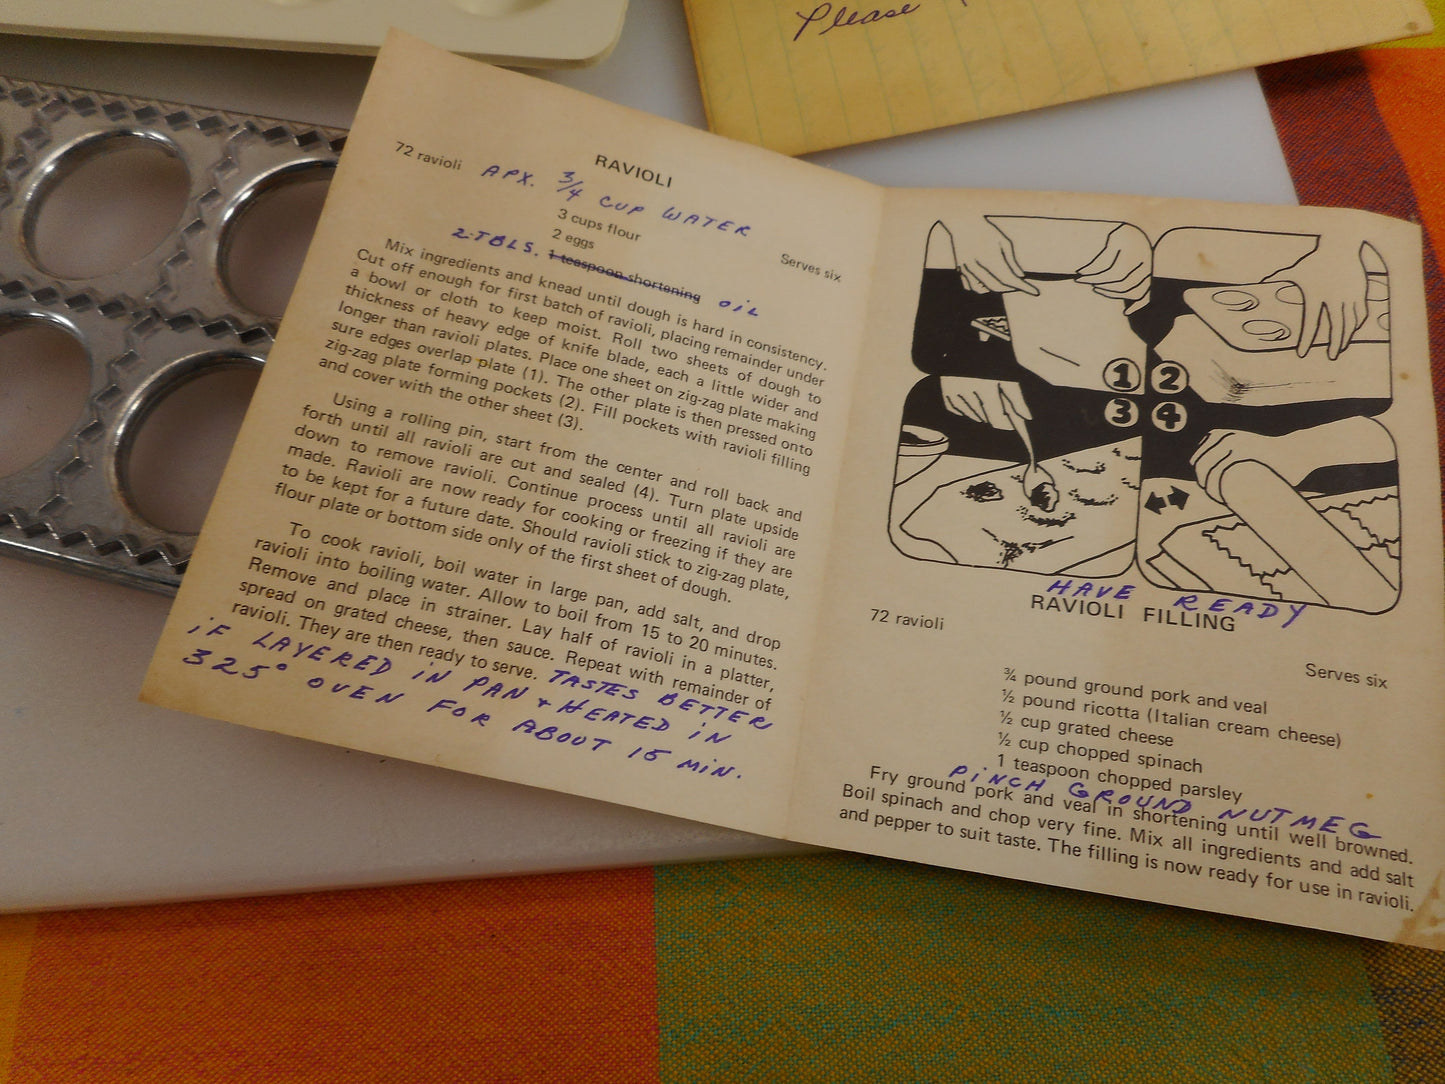 Please
RAVIOLI
72 ravioli
APX. 3/4 CUP WATER
3 cups flour
2 eggs
Serves six
2-TBLS. 1 teaspoon shortening OIL
Mix ingredients and knead until dough is hard in consistency.
Cut off enough for first batch of ravioli, placing remainder under
a bowl or cloth to keep moist. Roll two sheets of dough to
thickness of heavy edge of knife blade, each a little wider and
longer than ravioli plates. Place one sheet on zig-zag plate making
sure edges overlap plate (1). The other plate is then pressed onto
zig-zag plate forming pockets (2). Fill pockets with ravioli filling
and cover with the other sheet (3).
Using a rolling pin, start from the center and roll back and
forth until all ravioli are cut and sealed (4). Turn plate upside
down to remove ravioli. Continue process until all ravioli are
made. Ravioli are now ready for cooking or freezing if they are
to be kept for a future date. Should ravioli stick to zig-zag plate,
flour plate or bottom side only of the first sheet of dough.
To cook ravioli, boil water in large pan, add salt, and drop
ravioli into boiling water. Allow to boil from 15 to 20 minutes.
Remove and place in strainer. Lay half of ravioli in a platter,
spread on grated cheese, then sauce. Repeat with remainder of
ravioli. They are then ready to serve. TASTES BETTER
iF LAYERED iN PAN + HEATED iN
325° OVEN FOR ABOUT 15 MiN.
1 2
3 4
HAVE READY
RAVIOLI FILLING
72 ravioli
Serves six
¾ pound ground pork and veal
½ pound ricotta (Italian cream cheese)
½ cup grated cheese
½ cup chopped spinach
1 teaspoon chopped parsley
PiNCH GROUND NUTMEG
Fry ground pork and veal in shortening until well browned.
Boil spinach and chop very fine. Mix all ingredients and add salt
and pepper to suit taste. The filling is now ready for use in ravioli.